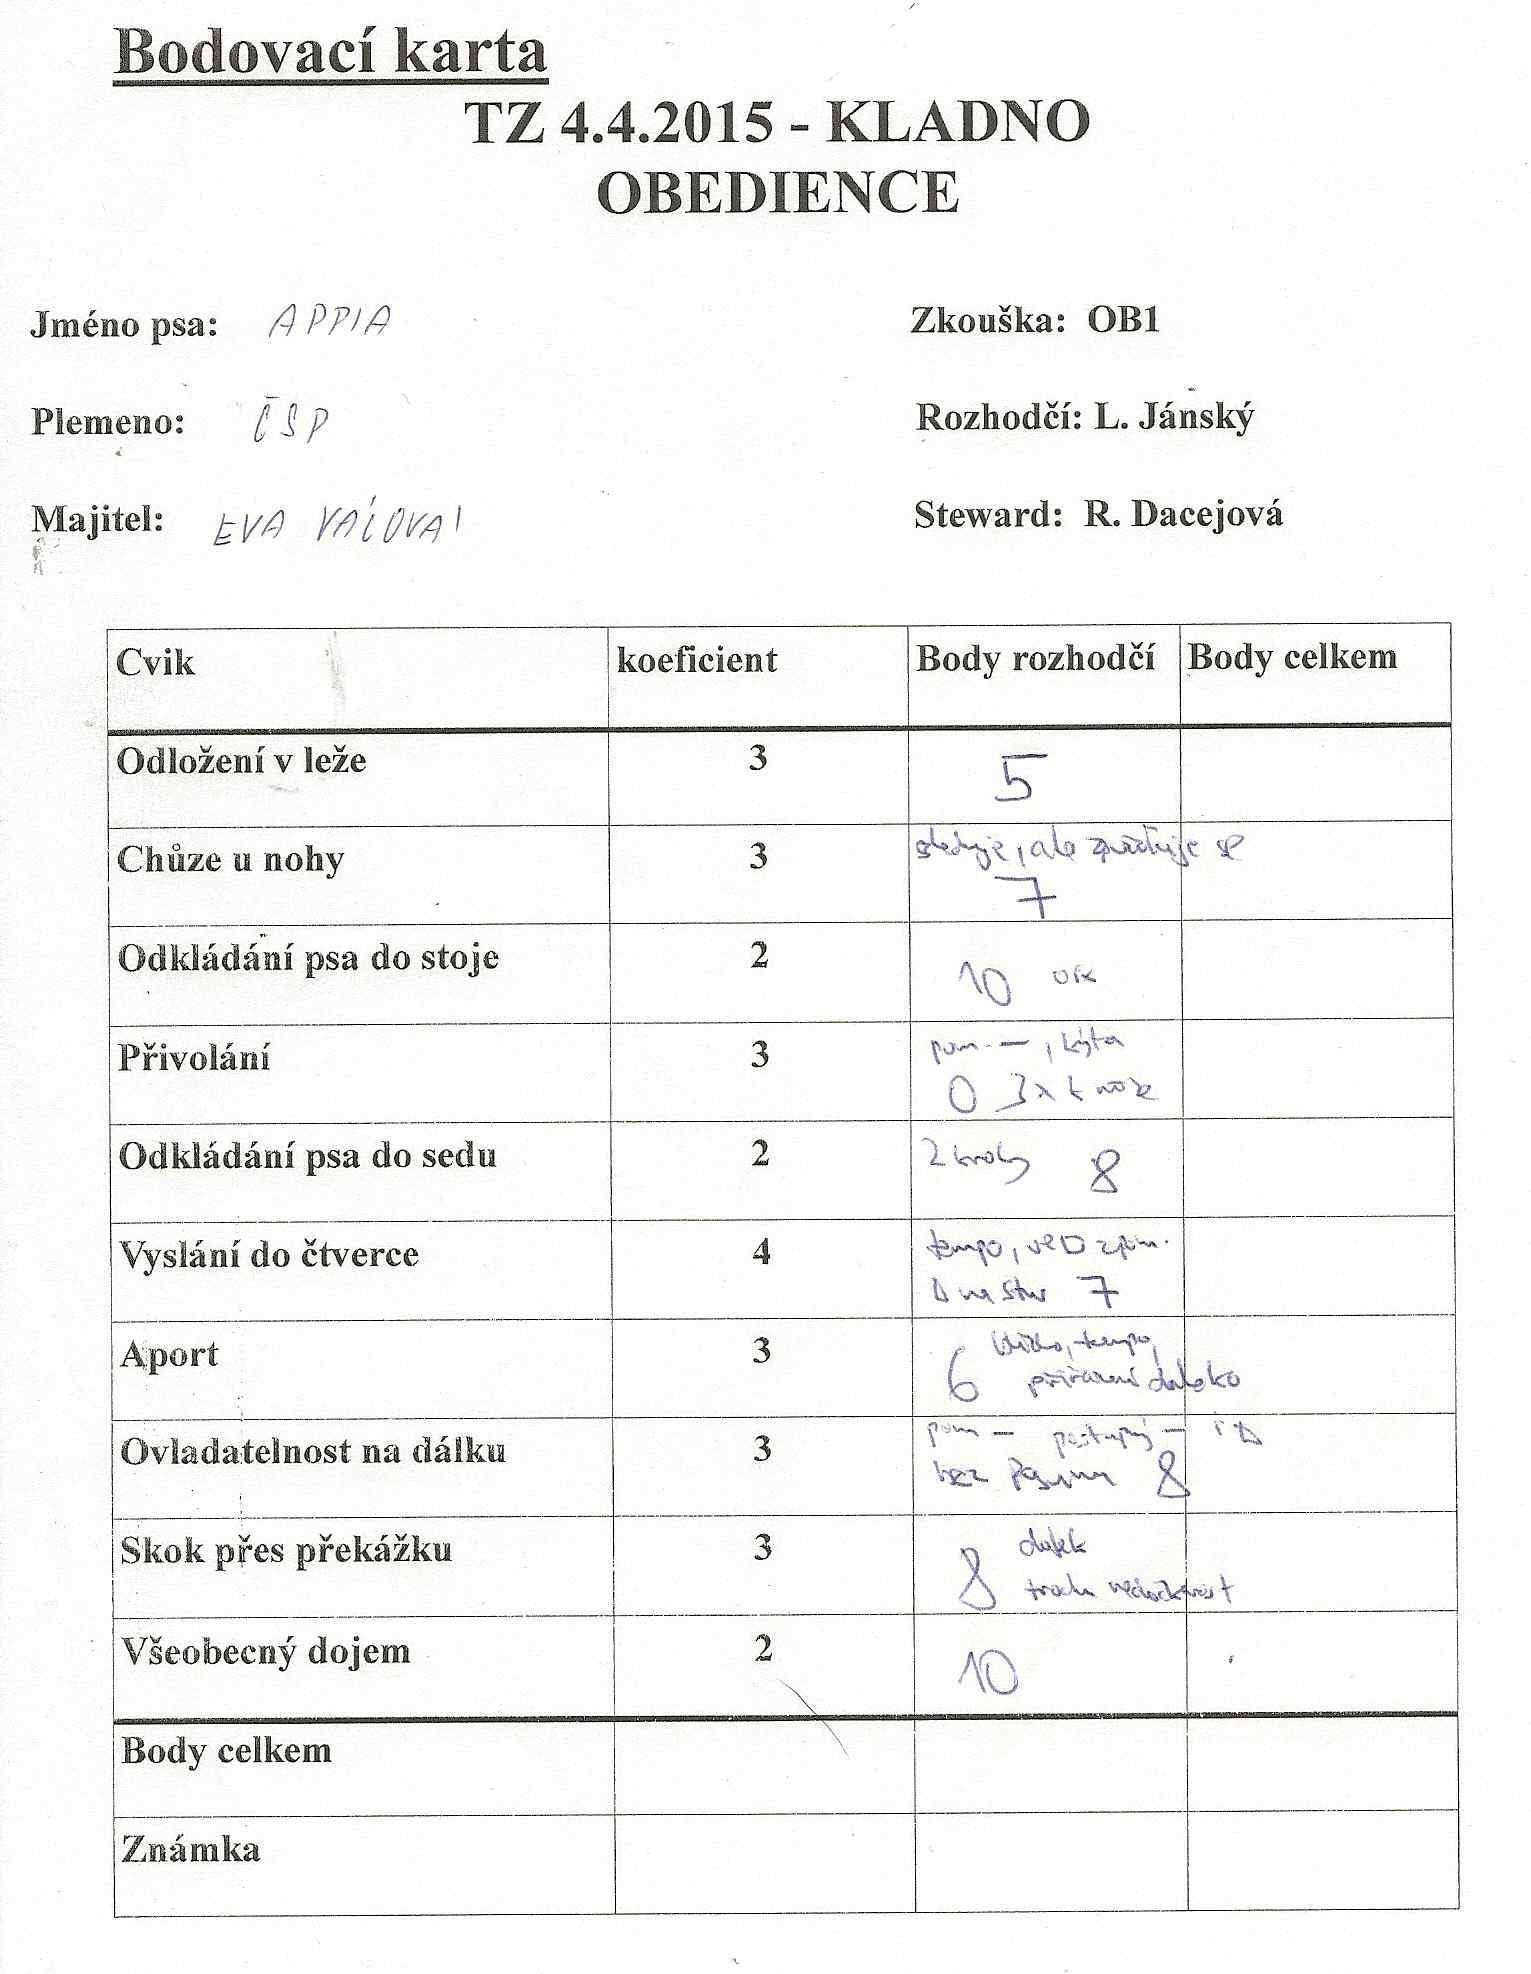 Bodovací karta
TZ 4.4.2015 - KLADNO
OBEDIENCE
Jméno psa: APPIA
Zkouška: OB1
Plemeno: ČSP
Rozhodčí: L. Jánský
Majitel: EVA VÁLOVÁ
Steward: R. Dacejová
Cvik koeficient Body rozhodčí Body celkem
Odložení v leže 3 5
Chůze u nohy 3 sleduje, ale se
7
Odkládání psa do stoje 2 10 OK
Přivolání 3 pom.
0 3x k noze
Odkládání psa do sedu 2 2 kroky 8
Vyslání do čtverce 4 tempo,
7
Aport 3 tempo,
6 přiřazení daleko
Ovladatelnost na dálku 3 pom
bez posunu 8
Skok přes překážku 3
8 trochu nedočkavost
Všeobecný dojem 2 10
Body celkem
Známka